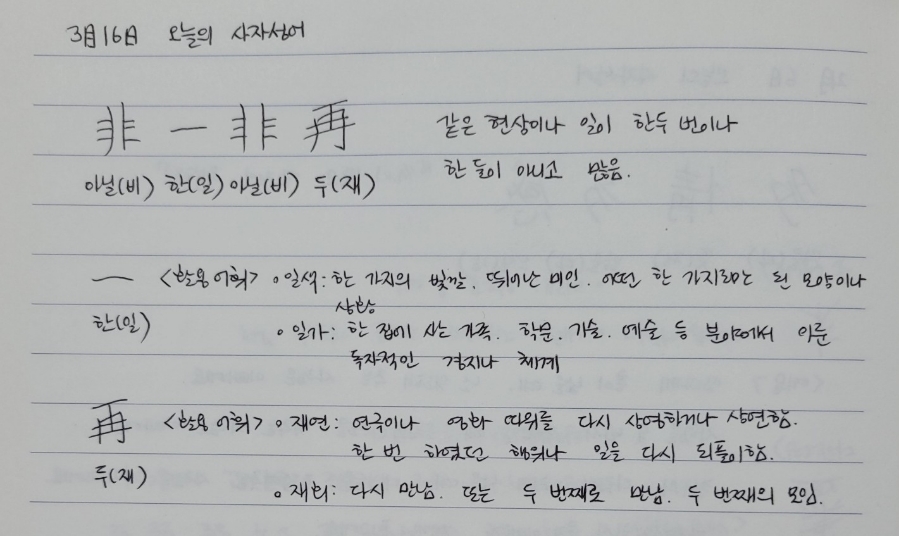 3月16日 오늘의 사자성어
非 一 非 再 같은 현상이나 일이 한두 번이나
아닐(비) 한(일) 아닐(비) 두(재) 한 둘이 아니고 많음.
一 <활용 어휘> ∘일색: 한 가지의 빛깔. 뛰어난 미인. 어떤 한 가지로만 된 모양이나
상황
한(일) ∘일가: 한 집에 사는 가족. 학문. 기술. 예술 등 분야에서 이룬
독자적인 경지나 체계
再 <활용 어휘> ∘재연: 연극이나 영화 따위를 다시 상영하거나 상연함.
한 번 하였던 행위나 일을 다시 되풀이함.
두(재) ∘재회: 다시 만남. 또는 두 번째로 만남. 두 번째의 모임.